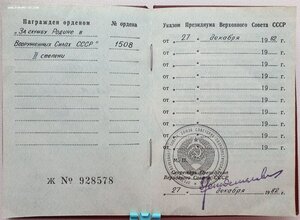 Награжден орденом
№ ордена
„За службу Родине в
Вооруженных Силах СССР"
1508
II степени
Ж № 928578
Указом Президиума Верховного Совета СССР
от „ 27 " декабря 1982 г.
от „ " 19 г.
от „ " 19 г.
от „ " 19 г.
от „ " 19 г.
от „ " 19 г.
от „ " 19 г.
М. П.
Секретарь Президиума
Верховного Совета СССР
„ 27 " декабря 1982 г.